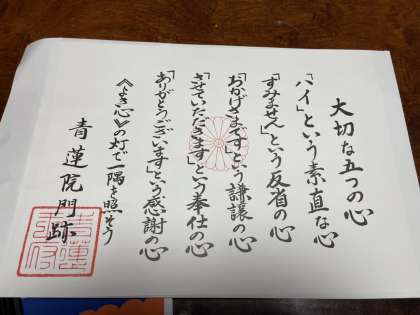 大切な五つの心
「ハイ」という素直な心
「すみません」という反省の心
「おかげさまです」という謙譲の心
「させていただきます」という奉仕の心
「ありがとうございます」という感謝の心
《よき心》の灯で一隅を照そう
青蓮院門跡